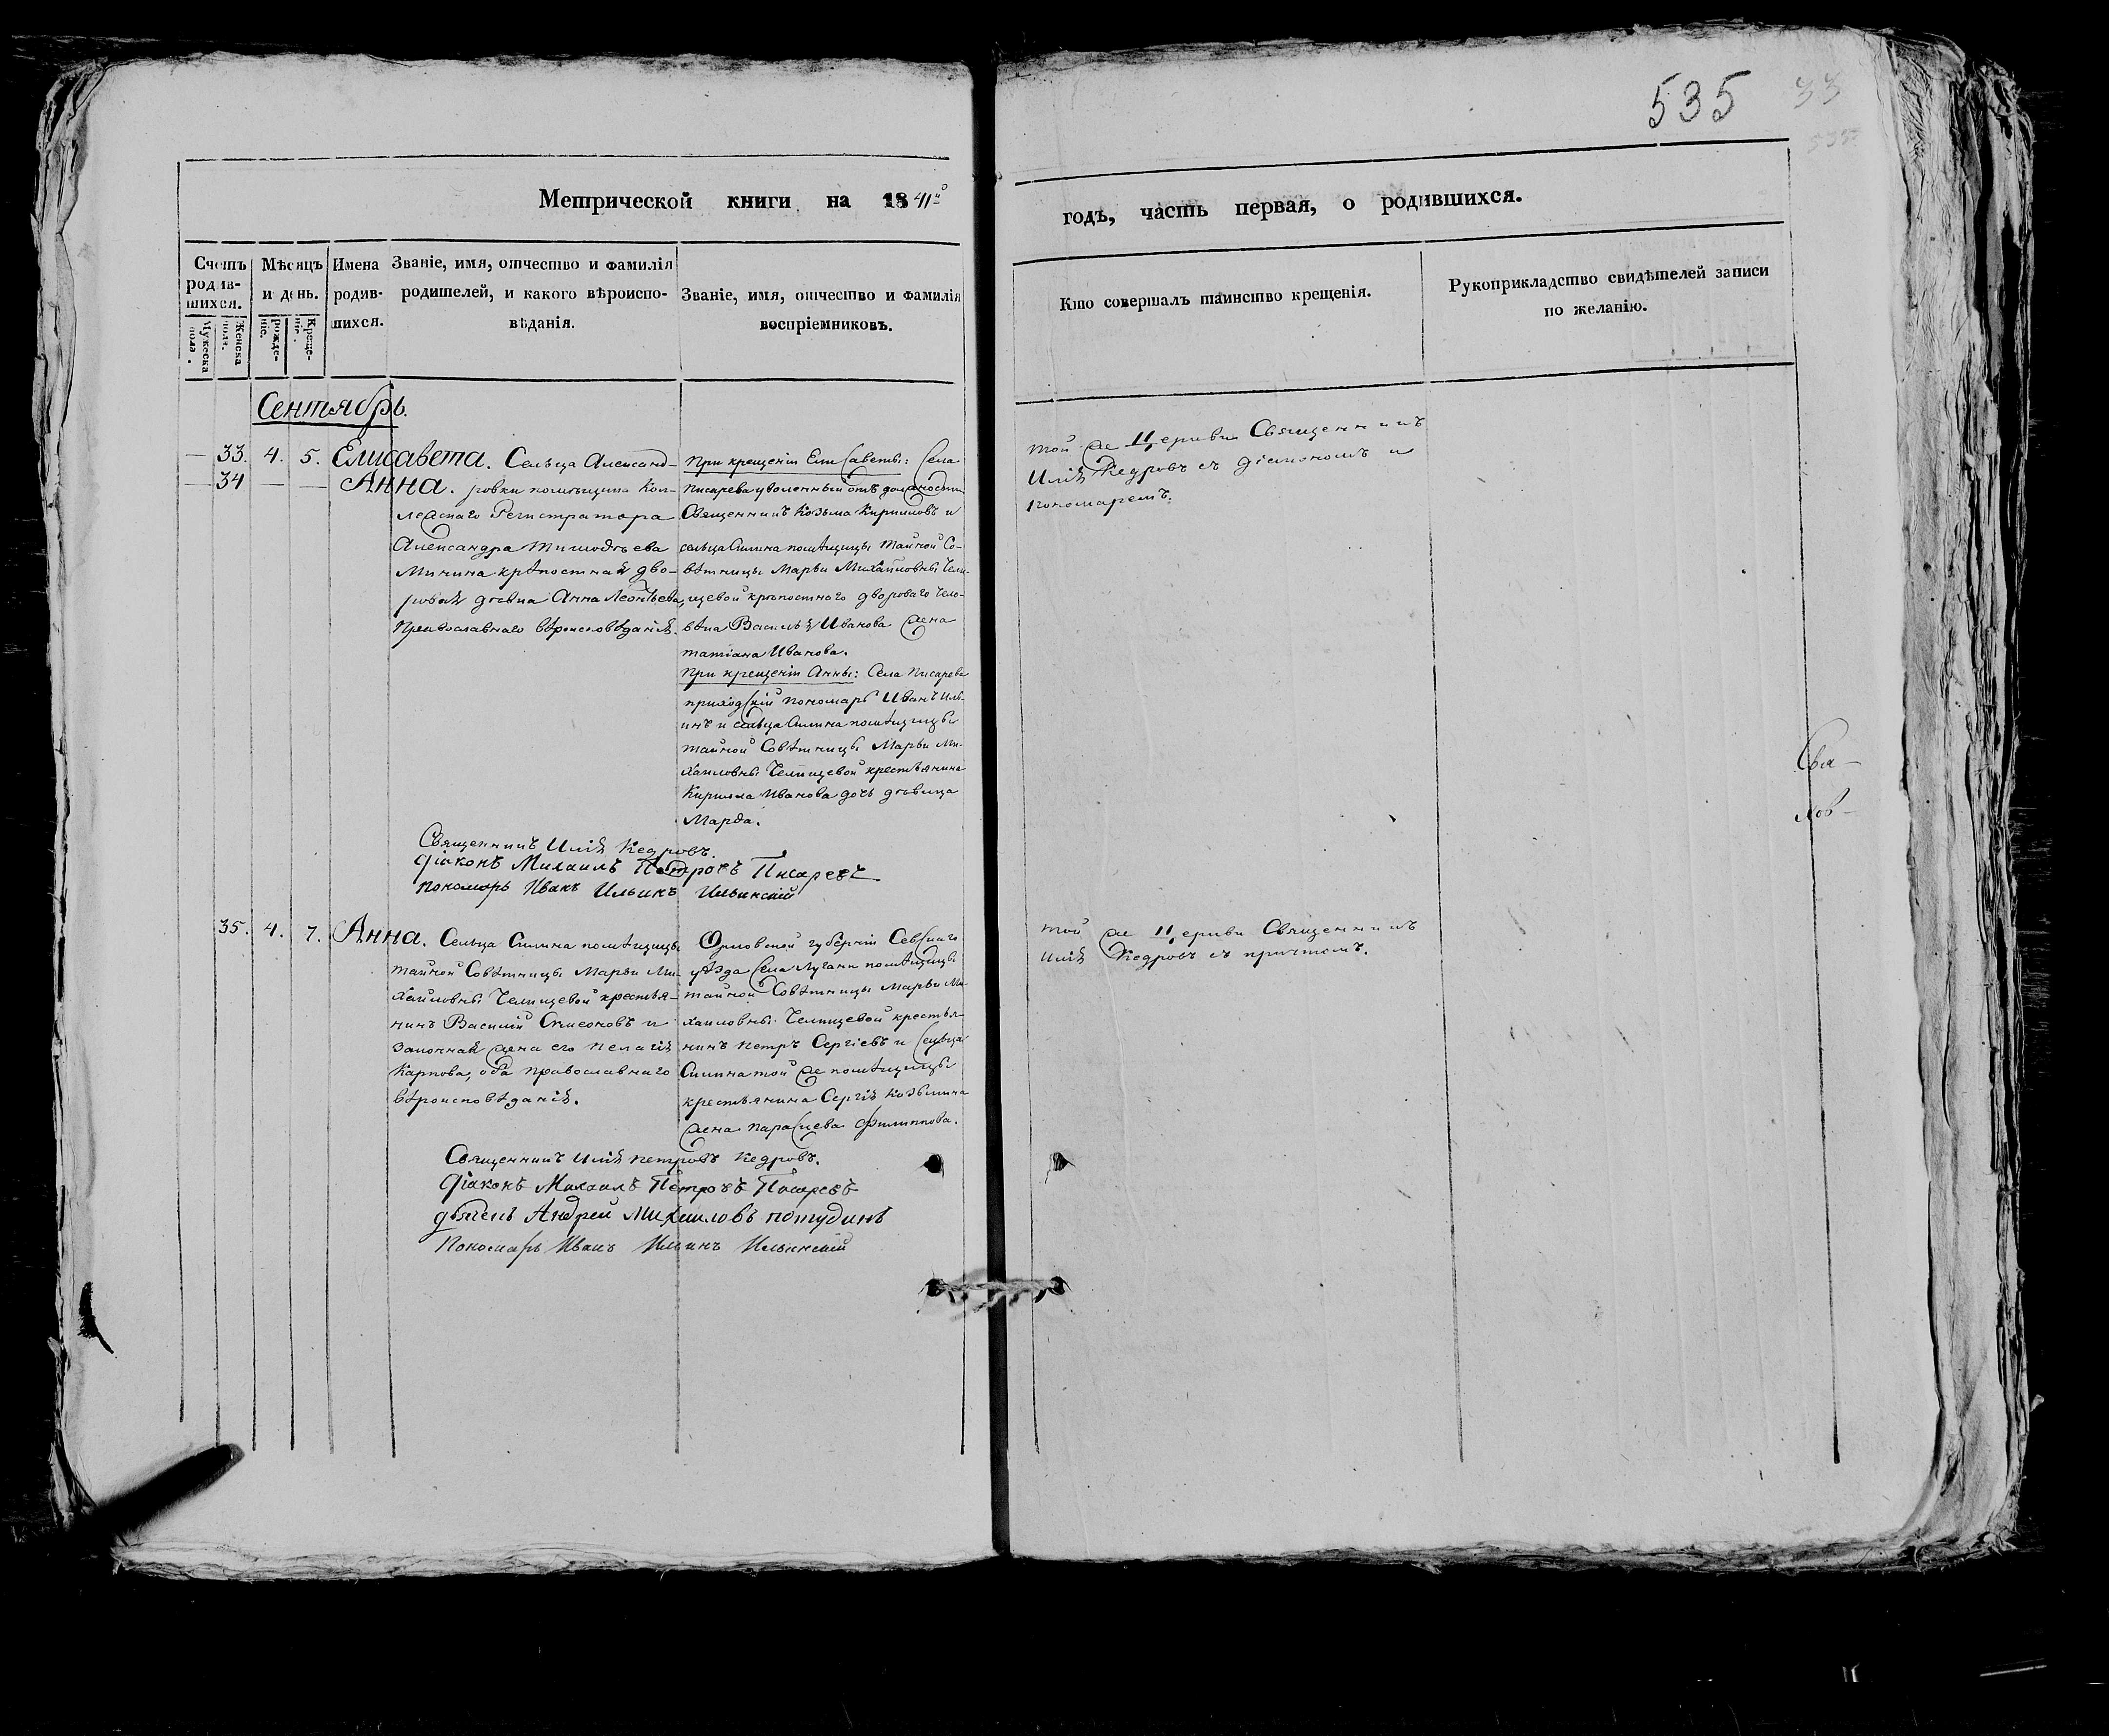 535
33
535
Метрической книги на 1841й
годъ, часть первая, о родившихся.
Счетъ родив-шихся.
Мужеска пола.
Женска пола.
Мѣсяцъ и день.
рожде-нія.
Креще-нія.
Имена родив-шихся.
Званіе, имя, отчество и фамилія
родителей, и какого вѣроиспо-
вѣданія.
Званіе, имя, отчество и фамилія
воспріемниковъ.
Кто совершалъ таинство крещенія.
Рукоприкладство свидѣтелей записи
по желанію.
Сентябрь.
— 33. 4. 5. Елисавета.
— 34 — — Анна.
Сельца Александ-
ровки помѣщика Кол-
лежскаго Регистратора
Александра Тимофѣева
Минина крѣпостная дво-
ровая дѣвка Анна Леонтьева,
Православнаго вѣроисповѣданія.
При крещеніи Елисаветы: Села
Писарева уволенный отъ должности
Священникъ Козьма Кирилловъ и
сельца Силина помѣщицы тайной Со-
вѣтницы Марьи Михайловны Чели-
щевой крѣпостнаго двороваго чело-
вѣка Василья Иванова жена
татіана Иванова.
При крещеніи Анны: Села Писарева
приходскій пономарь Иванъ Иль-
инъ и сельца Силина помѣщицы
тайной Совѣтницы Марьи Ми-
хайловны Челищевой крестьянина
Кирилла Иванова дочь дѣвица
Марфа.
той же Церкви Священникъ
Илія Кедровъ съ діакономъ и
пономаремъ.
Священникъ Илія Кедровъ.
Діаконъ Михаилъ Петровъ Писаревъ
Пономарь Иванъ Ильинъ Ильинскій
35. 4. 7. Анна.
Сельца Силина помѣщицы
тайной Совѣтницы Марьи Ми-
хайловны Челищевой крестья-
нинъ Василій Симоновъ и
законная жена его Пелагія
Карпова, оба православнаго
вѣроисповѣданія.
Орловской губерніи Севскаго
уѣзда Села Лугани помѣщицы
тайной Совѣтницы Марьи Ми-
хайловны Челищевой крестья-
нинъ Петръ Сергіевъ и Сельца
Силина той же помѣщицы
крестьянина Сергія Козьмина
жена Параскева Филиппова.
той же Церкви Священникъ
Илія Кедровъ съ причтомъ.
Священникъ Илія Петровъ Кедровъ.
Діаконъ Михаилъ Петровъ Писаревъ
дьячекъ Андрей Михаиловъ
Пономарь Иванъ Ильинъ Ильинскій
Свя-
ков-